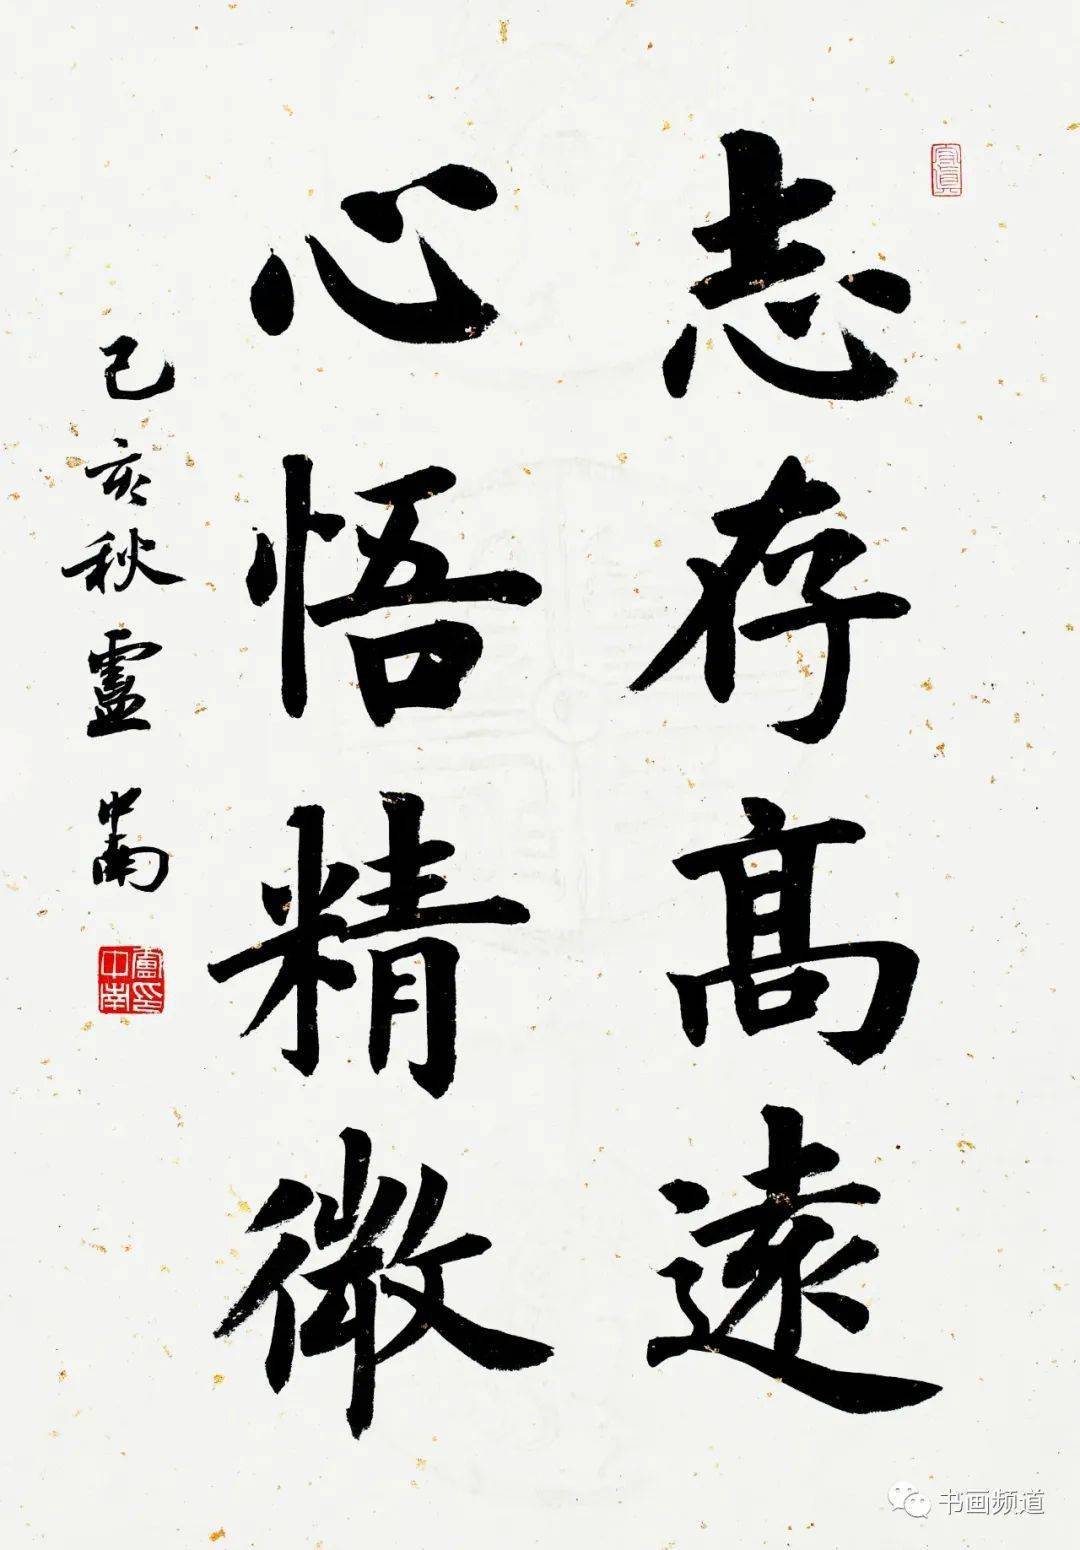 志存高遠
心悟精微
己亥秋盧中南
盧印中南
书画频道